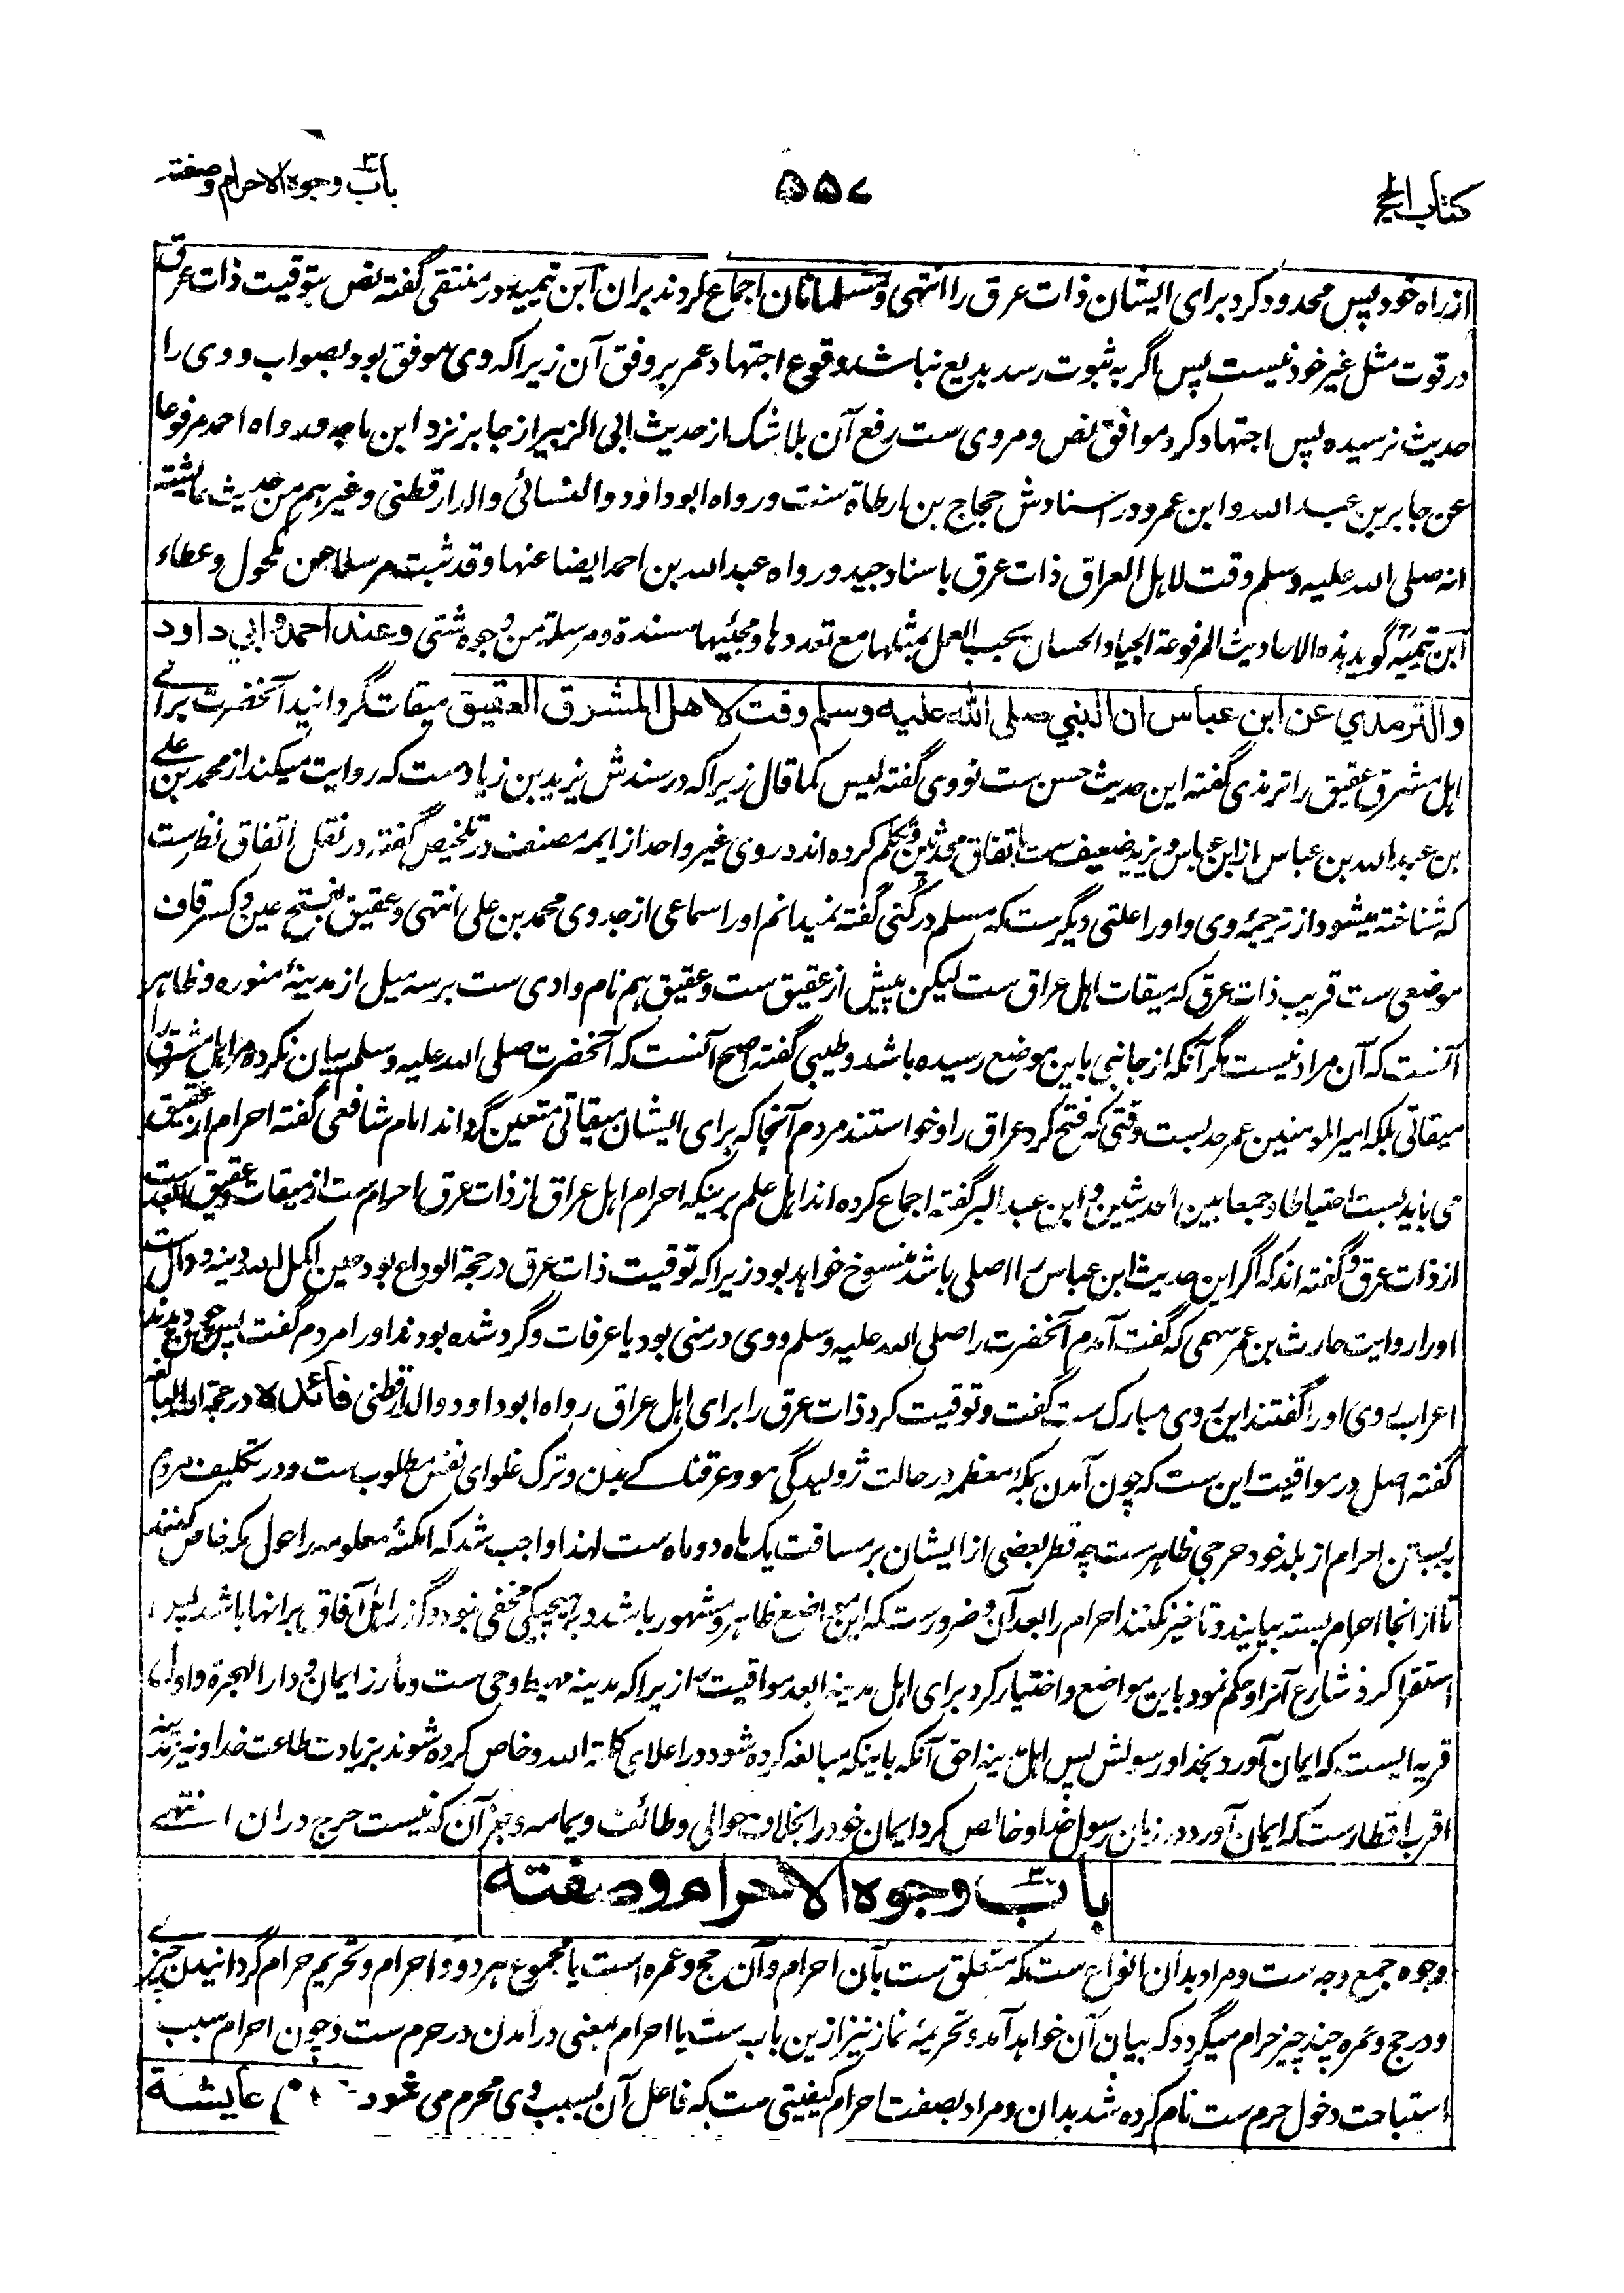 کتاب الحج
۵۵۷
باب وجوه الاحرام وصفته
از راه خود پس محدود کرد برای ایشان ذات عرق را انتهی و مسلمانان اجماع کردند بران ابن تیمیه در منتقی گفته نص بتوقیت ذات عرق
در قوت مثل غیر خود نیست پس اگر به ثبوت رسد بدیع نباشد وقوع اجتهاد عمر بر وفق آن زیرا که وی موفق بود بصواب و وی را
حدیث نرسیده پس اجتهاد کرد موافق نص و مروی ست رفع آن بلا شک از حدیث ابی الزبیر از جابر نزد ابن ماجه ورواه احمد مرفوعا
عن جابر بن عبد الله وابن عمر و در اسنادش حجاج بن ارطاة ست ورواه ابوداود والنسائی والدارقطنی وغیرهم من حدیث عائشة
انه صلی الله علیه وسلم وقت لاهل العراق ذات عرق باسناد جید ورواه عبدالله بن احمد ایضا عنها وقد ثبت مرسلا عن مکحول وعطاء
ابن تیمیه گوید هذه الاحادیث المرفوعة الجیاد الحسان یجب العمل بمثلها مع تعددها ومجیئها مسندة ومرسلة من وجوه شتی وعند احمد وابي داود
والترمذي عن ابن عباس ان النبي صلى الله عليه وسلم وقت لاهل المشرق العقيق میقات گردانید آنحضرت برای
اهل مشرق عقیق را ترمذی گفته این حدیث حسن ست نووی گفته لیس کما قال زیرا که در سندش یزید بن زیاد ست که روایت میکند از محمد بن علی
بن عبدالله بن عباس از ابن عباس و یزید ضعیف ست باتفاق محدثین و تکلم کرده اند در وی غیر واحد از ایمه مصنف در تلخیص گفته در نقل اتفاق نظرست
که شناخته میشود از ترجمهٔ وی و او را علتی دیگرست که مسلم در کنی گفته نمیدانم او را سماعی از جد وی محمد بن علی انتهی و عقیق بفتح عین و کسر قاف
موضعی ست قریب ذات عرق که میقات اهل عراق ست لیکن پیش از عقیق ست و عقیق هم نام وادی ست بر سه میل از مدینهٔ منوره و ظاهر
آنست که آن مراد نیست مگر آنکه از جانبی باین موضع رسیده باشد و طیبی گفته اصح آنست که آنحضرت صلی الله علیه وسلم بیان نکرده مر اهل مشرق را
میقاتی بلکه امیر المومنین عمر حد بست وقتی که فتح کرد عراق را و خواستند مردم آنجا که برای ایشان میقاتی متعین گرداند امام شافعی گفته احرام از عقیق
می باید بست احتیاطا وجمعا بین الحدیثین و ابن عبد البر گفته اجماع کرده اند اهل علم برینکه احرام اهل عراق از ذات عرق احرام ست از میقات و عقیق ابعد ست
از ذات عرق و گفته اند که اگر این حدیث ابن عباس را اصلی باشد منسوخ خواهد بود زیرا که توقیت ذات عرق در حجة الوداع بود حین اکمل الله دینه و دال ست
او را روایت حارث بن عمر سهمی که گفت آمدم آنحضرت را صلی الله علیه وسلم و وی در منی بود یا عرفات و گرد شده بودند او را مردم گفت پس چون دیدند
اعراب روی او را گفتند این روی مبارک ست گفت و توقیت کرد ذات عرق را برای اهل عراق رواه ابوداود والدارقطنی فائده در حجة الله البالغه
گفته اصل در مواقیت این ست که چون آمدن بمکهٔ معظمه در حالت ژولیدگی مو و عرقناکی بدن و ترک غلوای نفس مطلوب ست و در تکلیف مردم
ببستن احرام از بلد خود حرجی ظاهرست چه قطر بعضی از ایشان بر مسافت یک ماه دو ماه ست لهذا واجب شد که امکنهٔ معلومه را حول مکه خاص کنند
تا از انجا احرام بسته بیایند و تاخیر نکنند احرام را بعد آن و ضرورست که این مواضع ظاهر و مشهور باشد و بر هیچیکی مخفی نبود و گذر اهل آفاق بر انها باشد پس
استقرا کرد شارع آنرا و حکم نمود باین مواضع و اختیار کرد برای اهل مدینه ابعد مواقیت را زیرا که مدینه مهبط وحی ست و مأرز ایمان و دار الهجرة و اول
قریه ایست که ایمان آورد بخدا و رسولش پس اهل مدینه احق آنکه باینکه مبالغه کرده شود در اعلای کلمة الله و خاص کرده شوند بزیادت طاعت خدا و نیز مدینه
اقرب اقطارست که ایمان آورد در زمان رسول خدا و خالص کرد ایمان خود را بخلاف حوالی و طائف و یمامه و جز آن که نیست حرج دران انتهی
باب وجوه الاحرام وصفته
وجوه جمع وجه ست و مراد بدان انواع ست که متعلق ست بآن احرام و آن حج و عمره است یا مجموع هر دو و احرام و تحریم حرام گردانیدن چیزی
و در حج و عمره چند چیز حرام میگردد که بیان آن خواهد آمد و تحریمهٔ نماز نیز ازین باب ست یا احرام بمعنی درآمدن در حرم ست و چون احرام سبب
استباحت دخول حرم ست نام کرده شد بدان و مراد بصفت احرام کیفیتی ست که فاعل آن بسبب وی محرم می شود عایشة